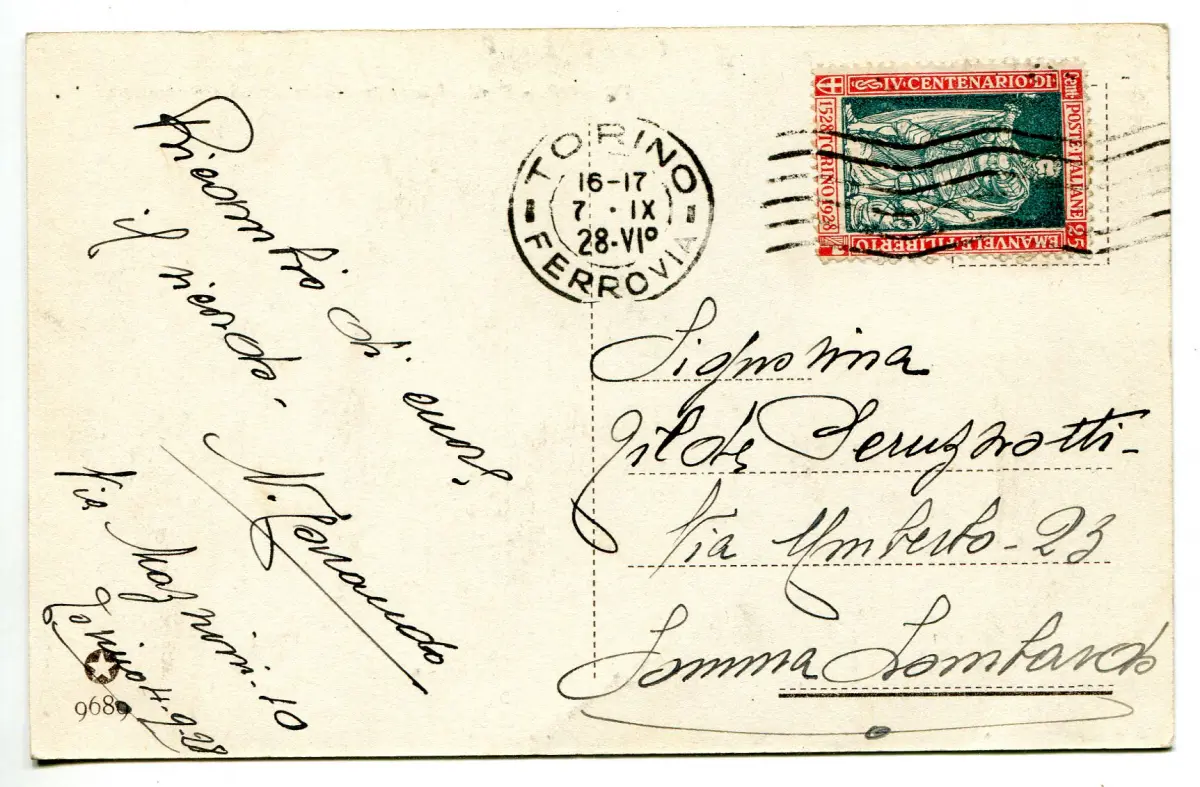 di cuor,
il ricordo.
Via Mazzini-10
Torino
9689
TORINO
16-17
7 · IX
28·VIº
FERROVIA
IV·CENTENARIO·DI
EMANVELE FILIBERTO
1528 TORINO 1928
POSTE ITALIANE
25
Cent
Signorina
Gilde Peruzzotti-
Via Umberto-23
Somma Lombardo